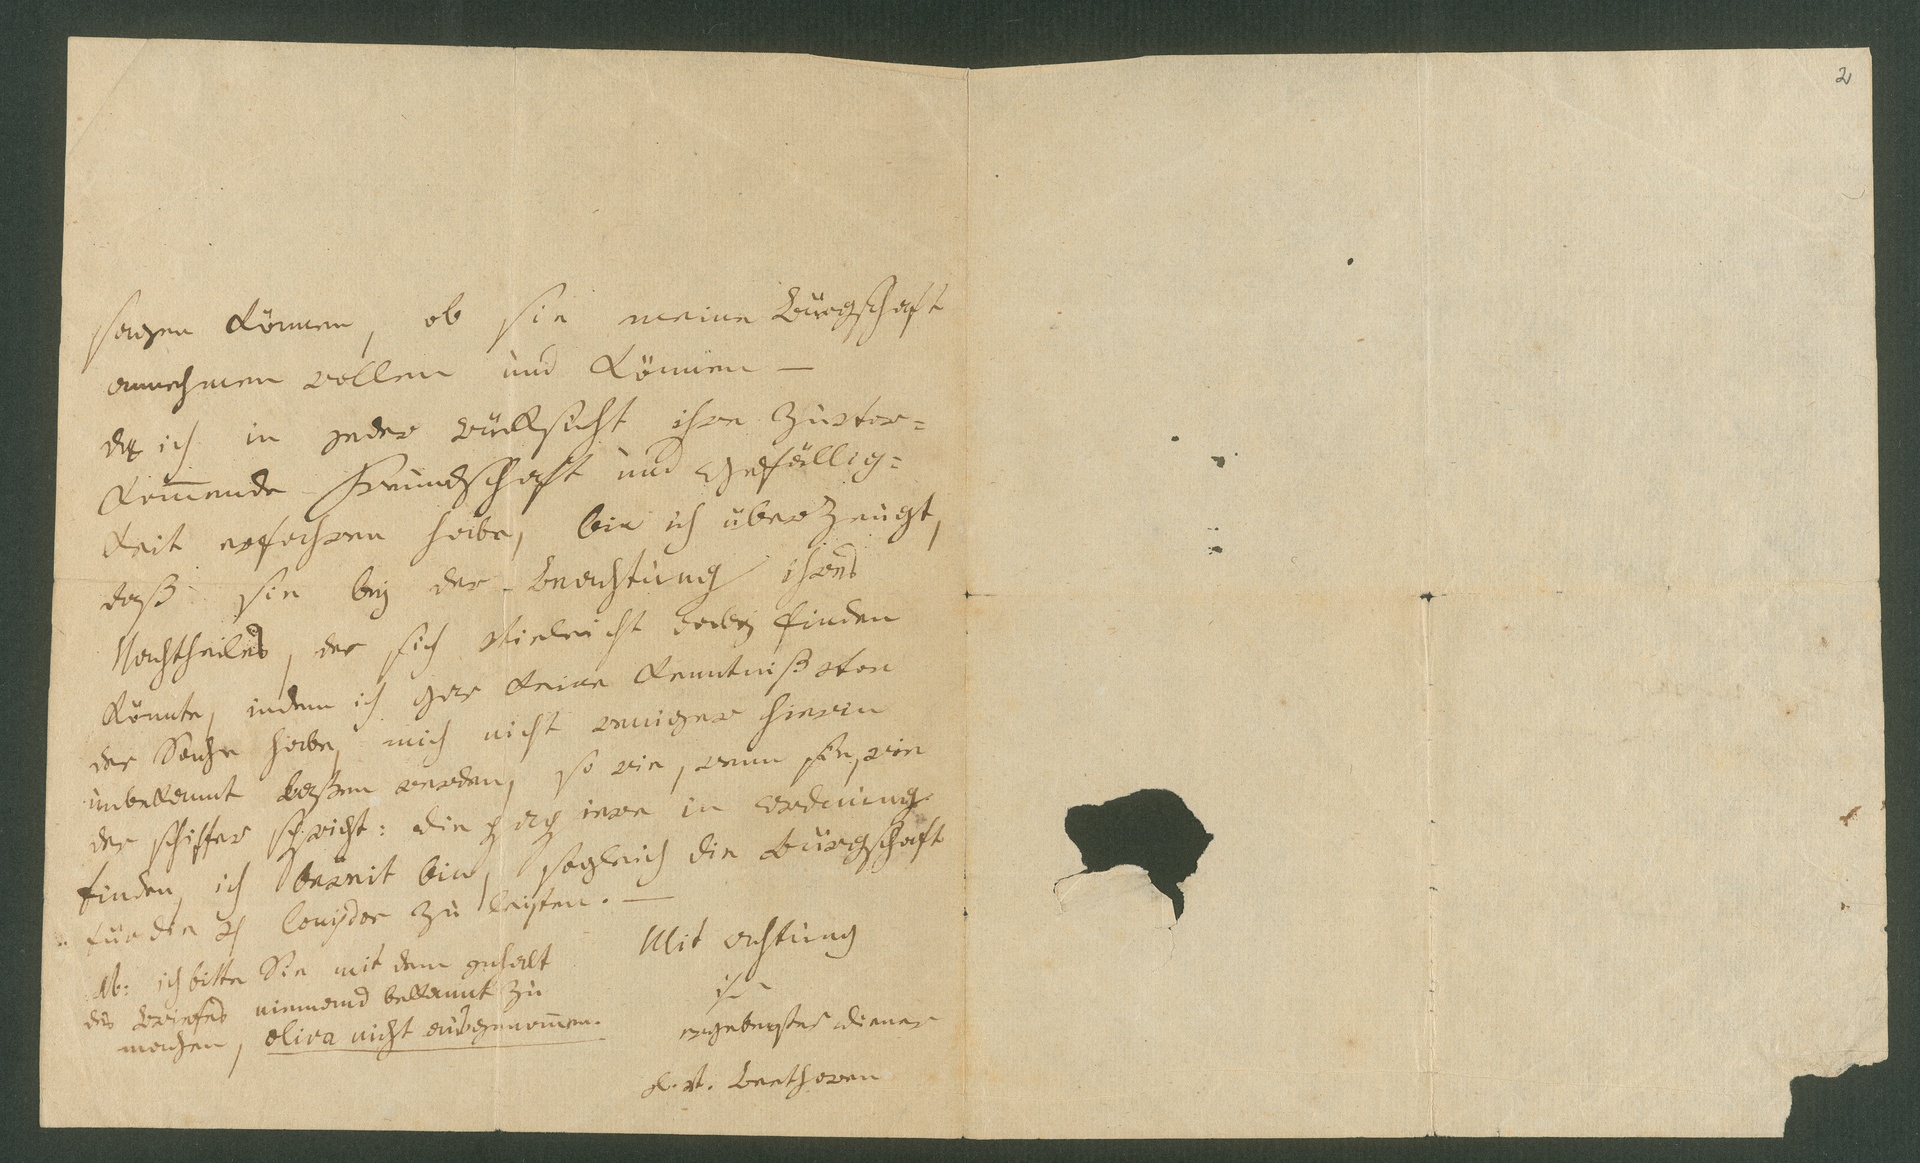 2
sagen können, ob sie meine Bürgschaft
annehmen wollen und können —
da ich in jeder rücksicht ihre zuvor=
kom̄ende Freundschaft und Gefällig=
keit erfahren habe, bin ich überzeugt,
daß sie bey der Beachtung ihres
Nachtheiles, der sich vieleicht dabey finden
könnte, indem ich gar keine Kenntniß von
der Sache habe, mich nicht weniger hierin
unbekannt laßen werden, so wie, wenn sie, wie
der schiffer spricht: die in ordnung
finden, ich bereit bin, sogleich die bürgschaft
für die louisdor zu leisten. —
Mit achtung
ihr
ergebenster diener
l. v. Beethoven
Nb: ich bitte Sie mit dem inhalt
des briefes niemand bekannt zu
machen, oliva nicht ausgenom̄en.